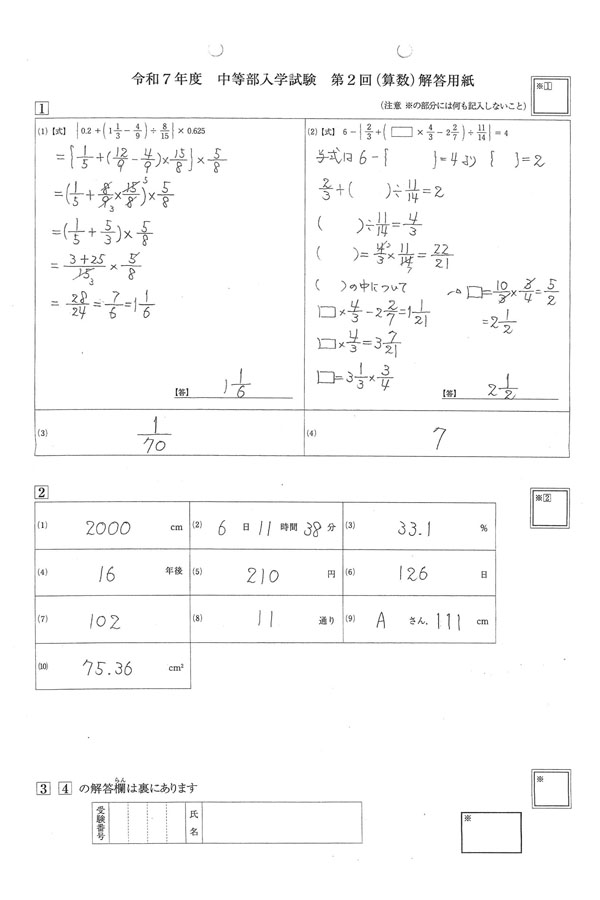 令和7年度 中等部入学試験 第2回(算数)解答用紙
※1
(注意 ※の部分には何も記入しないこと)
1
(1)【式】 {0.2 + (1 1/3 − 4/9) ÷ 8/15} × 0.625
= {1/5 + (12/9 − 4/9) × 15/8} × 5/8
= (1/5 + 8/9 × 15/8) × 5/8
3 5
= (1/5 + 5/3) × 5/8
= 3+25/15 × 5/8
3
= 28/24 = 7/6 = 1 1/6
【答】 1 1/6
(2)【式】 6 − {2/3 + (□ × 4/3 − 2 2/7) ÷ 11/14} = 4
与式は 6 − { } = 4 より { } = 2
2/3 + ( ) ÷ 11/14 = 2
( ) ÷ 11/14 = 4/3
( ) = 4/3 × 11/14 = 22/21
( )の中について
□ × 4/3 − 2 2/7 = 1 1/21
□ × 4/3 = 3 7/21
□ = 3 1/3 × 3/4
→ □ = 10/3 × 3/4 = 5/2
= 2 1/2
【答】 2 1/2
(3) 1/70
(4) 7
2
※2
(1) 2000 cm
(2) 6 日 11 時間 38 分
(3) 33.1 %
(4) 16 年後
(5) 210 円
(6) 126 日
(7) 102
(8) 11 通り
(9) A さん, 111 cm
(10) 75.36 cm²
3 4 の解答欄は裏にあります
らん
※
受験番号
氏名
※